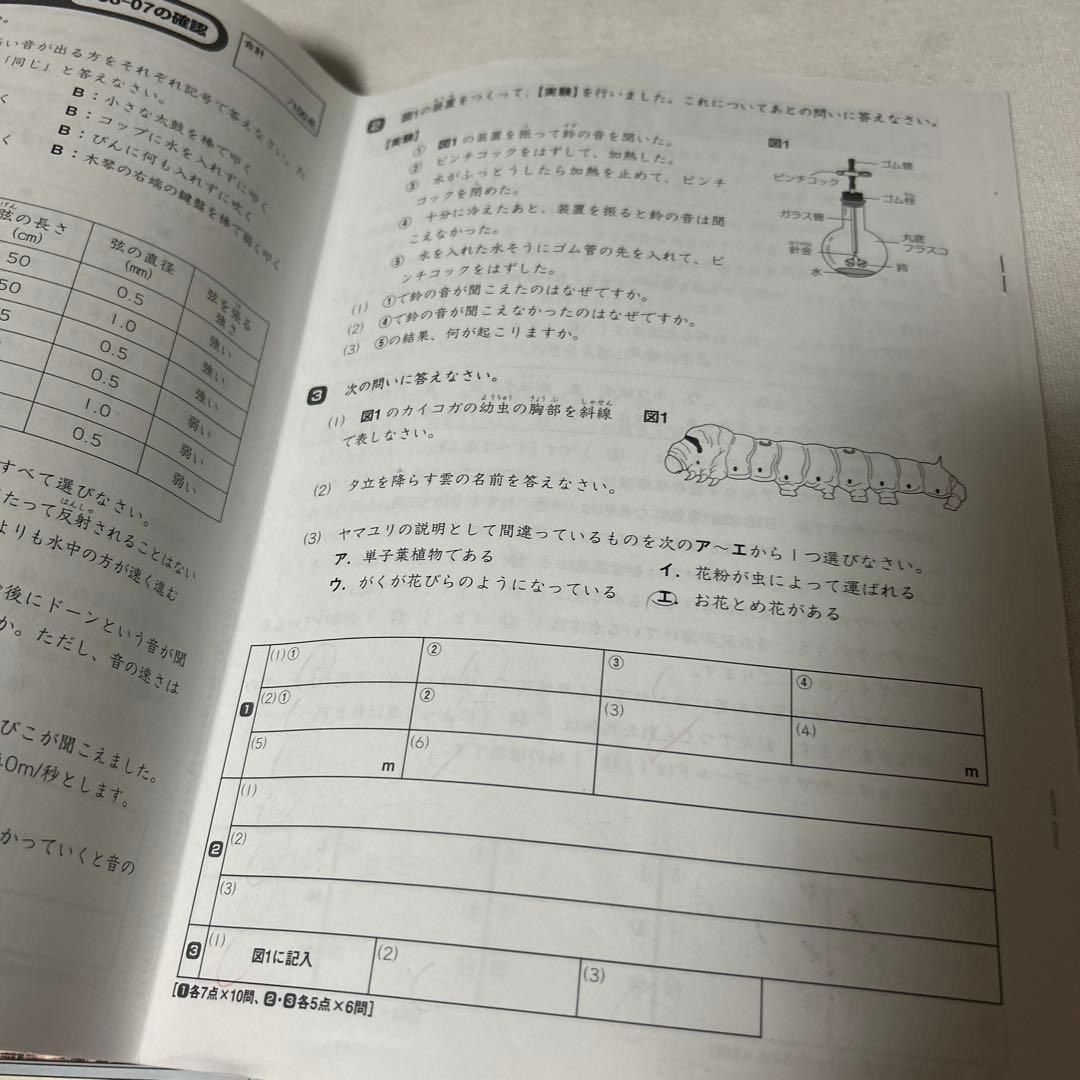 -07の確認
合計
い音が出る方をそれぞれ記号で答えなさい。た
「同じ」と答えなさい。
B：小さな太鼓を棒で叩く
B：コップに水を入れずに叩く
B：びんに何も入れずに吹く
B：木琴の右端の鍵盤を棒で弱く叩く
弦の長さ
(cm)
弦の直径
(mm)
弦を張る
強さ
50
0.5
強い
50
1.0
強い
5
0.5
強い
0.5
弱い
1.0
弱い
0.5
弱い
すべて選びなさい。
たって反射されることはない
よりも水中の方が速く進む
後にドーンという音が聞
か。ただし、音の速さは
びこが聞こえました。
0m/秒とします。
かっていくと音の
2 図1の装置をつくって、【実験】を行いました。これについてあとの問いに答えなさい。
【実験】
① 図1の装置を振って鈴の音を聞いた。
② ピンチコックをはずして、加熱した。
③ 水がふっとうしたら加熱を止めて、ピンチ
コックを閉めた。
④ 十分に冷えたあと、装置を振ると鈴の音は聞
こえなかった。
⑤ 水を入れた水そうにゴム管の先を入れて、ピ
ンチコックをはずした。
図1
ゴム管
ピンチコック
ゴム栓
ガラス管
丸底
フラスコ
針金
鈴
水
(1) ①で鈴の音が聞こえたのはなぜですか。
(2) ④で鈴の音が聞こえなかったのはなぜですか。
(3) ⑤の結果、何が起こりますか。
3 次の問いに答えなさい。
(1) 図1のカイコガの幼虫の胸部を斜線
で表しなさい。
図1
(2) 夕立を降らす雲の名前を答えなさい。
(3) ヤマユリの説明として間違っているものを次のア～エから1つ選びなさい。
ア．単子葉植物である
イ．花粉が虫によって運ばれる
ウ．がくが花びらのようになっている
エ．お花とめ花がある
1
(1)① ② ③ ④
(2)① ② (3) (4) m
(5) m (6)
2
(1)
(2)
(3)
3
(1) 図1に記入 (2) (3)
[1各7点×10問、2・3各5点×6問]